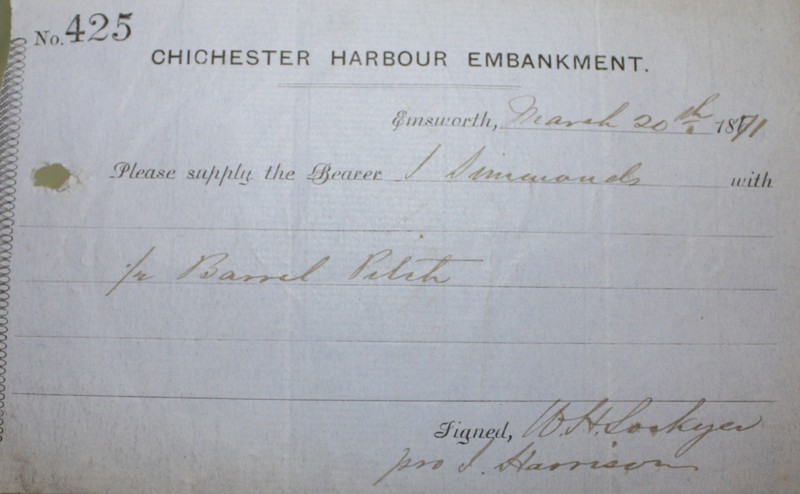 No. 425
CHICHESTER HARBOUR EMBANKMENT.
Emsworth, March 20th 1871
Please supply the Bearer J Simmonds with
1/2 Barrel Pitch
Signed, W. H. Lockyer
pro J. Harrison